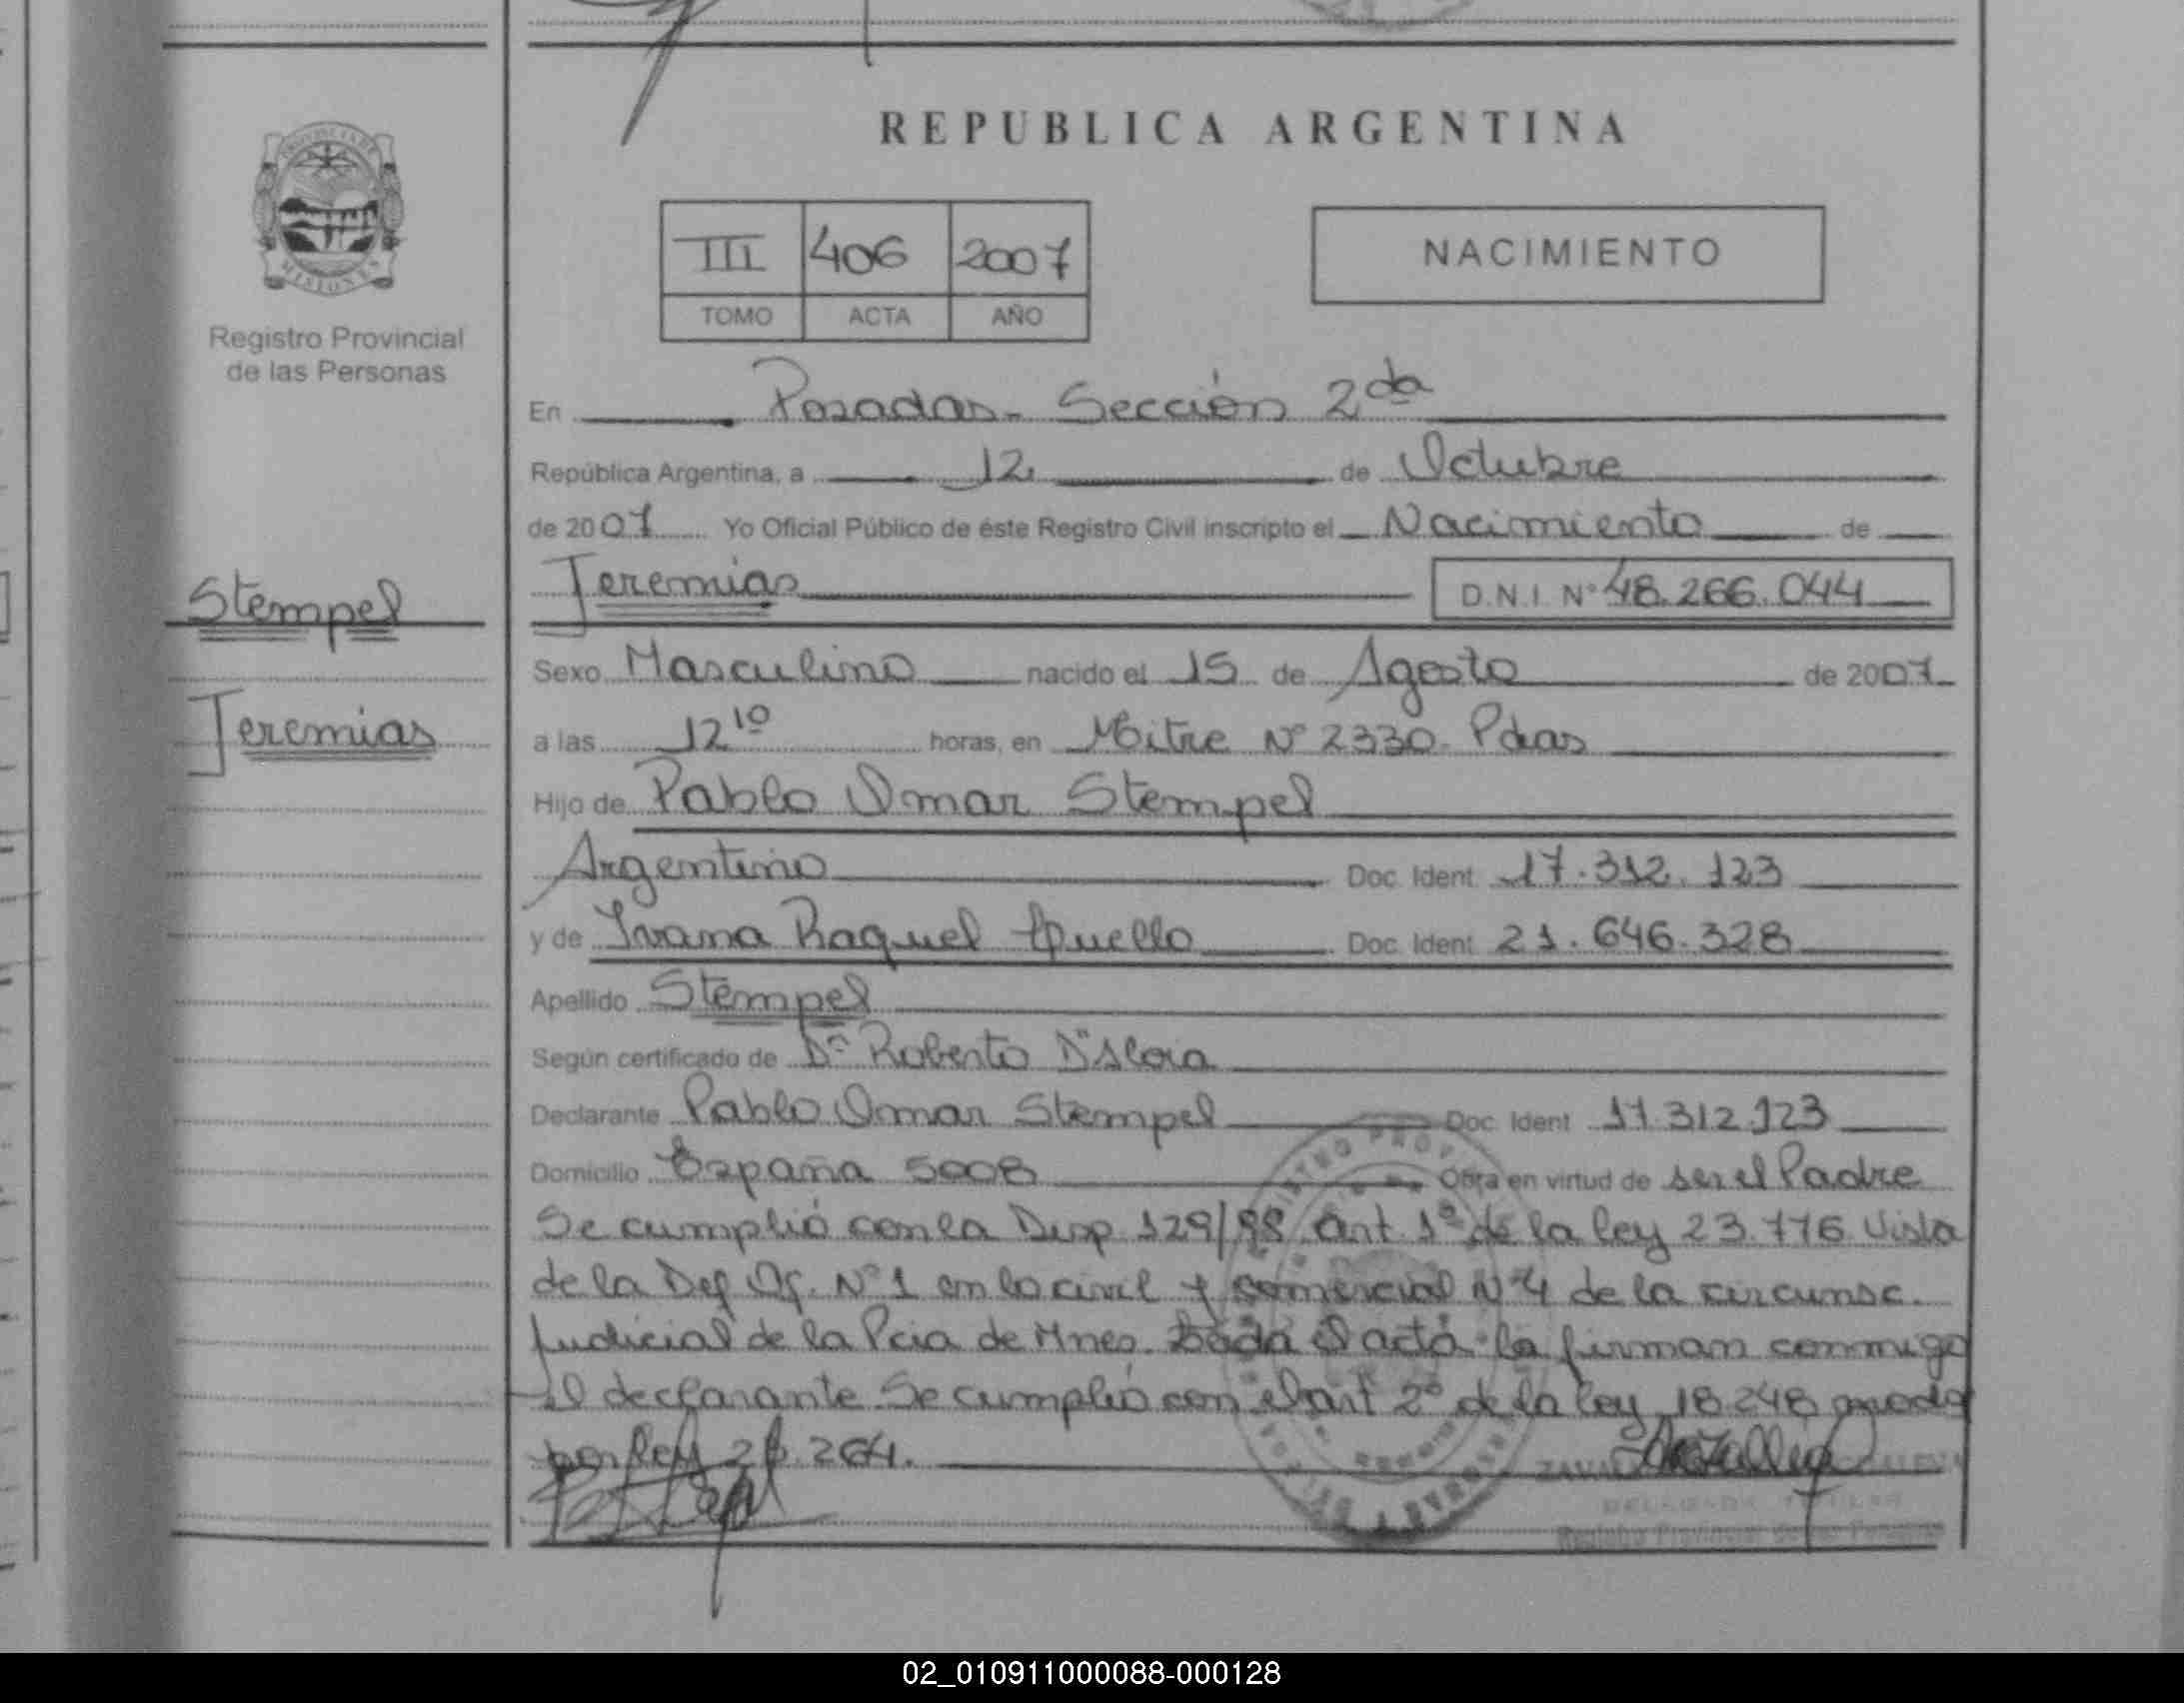 REPUBLICA ARGENTINA
PROVINCIA DE
MISIONES
Registro Provincial
de las Personas
III 406 2007
TOMO ACTA AÑO
NACIMIENTO
En Posadas - Sección 2da
República Argentina, a 12 de Octubre
de 2007 Yo Oficial Público de éste Registro Civil inscripto el Nacimiento de
Stempel
Jeremias
Jeremias D.N.I. Nº 48.266.044
Sexo Masculino nacido el 15 de Agosto de 2007
a las 12 10 horas, en Mitre Nº 2330 - Pdas
Hijo de Pablo Omar Stempel
Argentino Doc. Ident. 17.312.123
y de Ivana Raquel Doc. Ident. 21.646.328
Apellido Stempel
Según certificado de Dr Roberto D'Aloia
Declarante Pablo Omar Stempel Doc. Ident. 17.312.123
Domicilio España 5008 Obra en virtud de ser el Padre
Se cumplió con la Disp 129/98 art. 1º de la ley 23.776 Vista
de la Def Of. Nº 1 en lo civil y comercial Nº 4 de la circunsc.
Judicial de la Pcia de Mnes. el acta la firman conmigo
el declarante Se cumplió con el art 2º de la ley 18248
por ley 264.
02_010911000088-000128